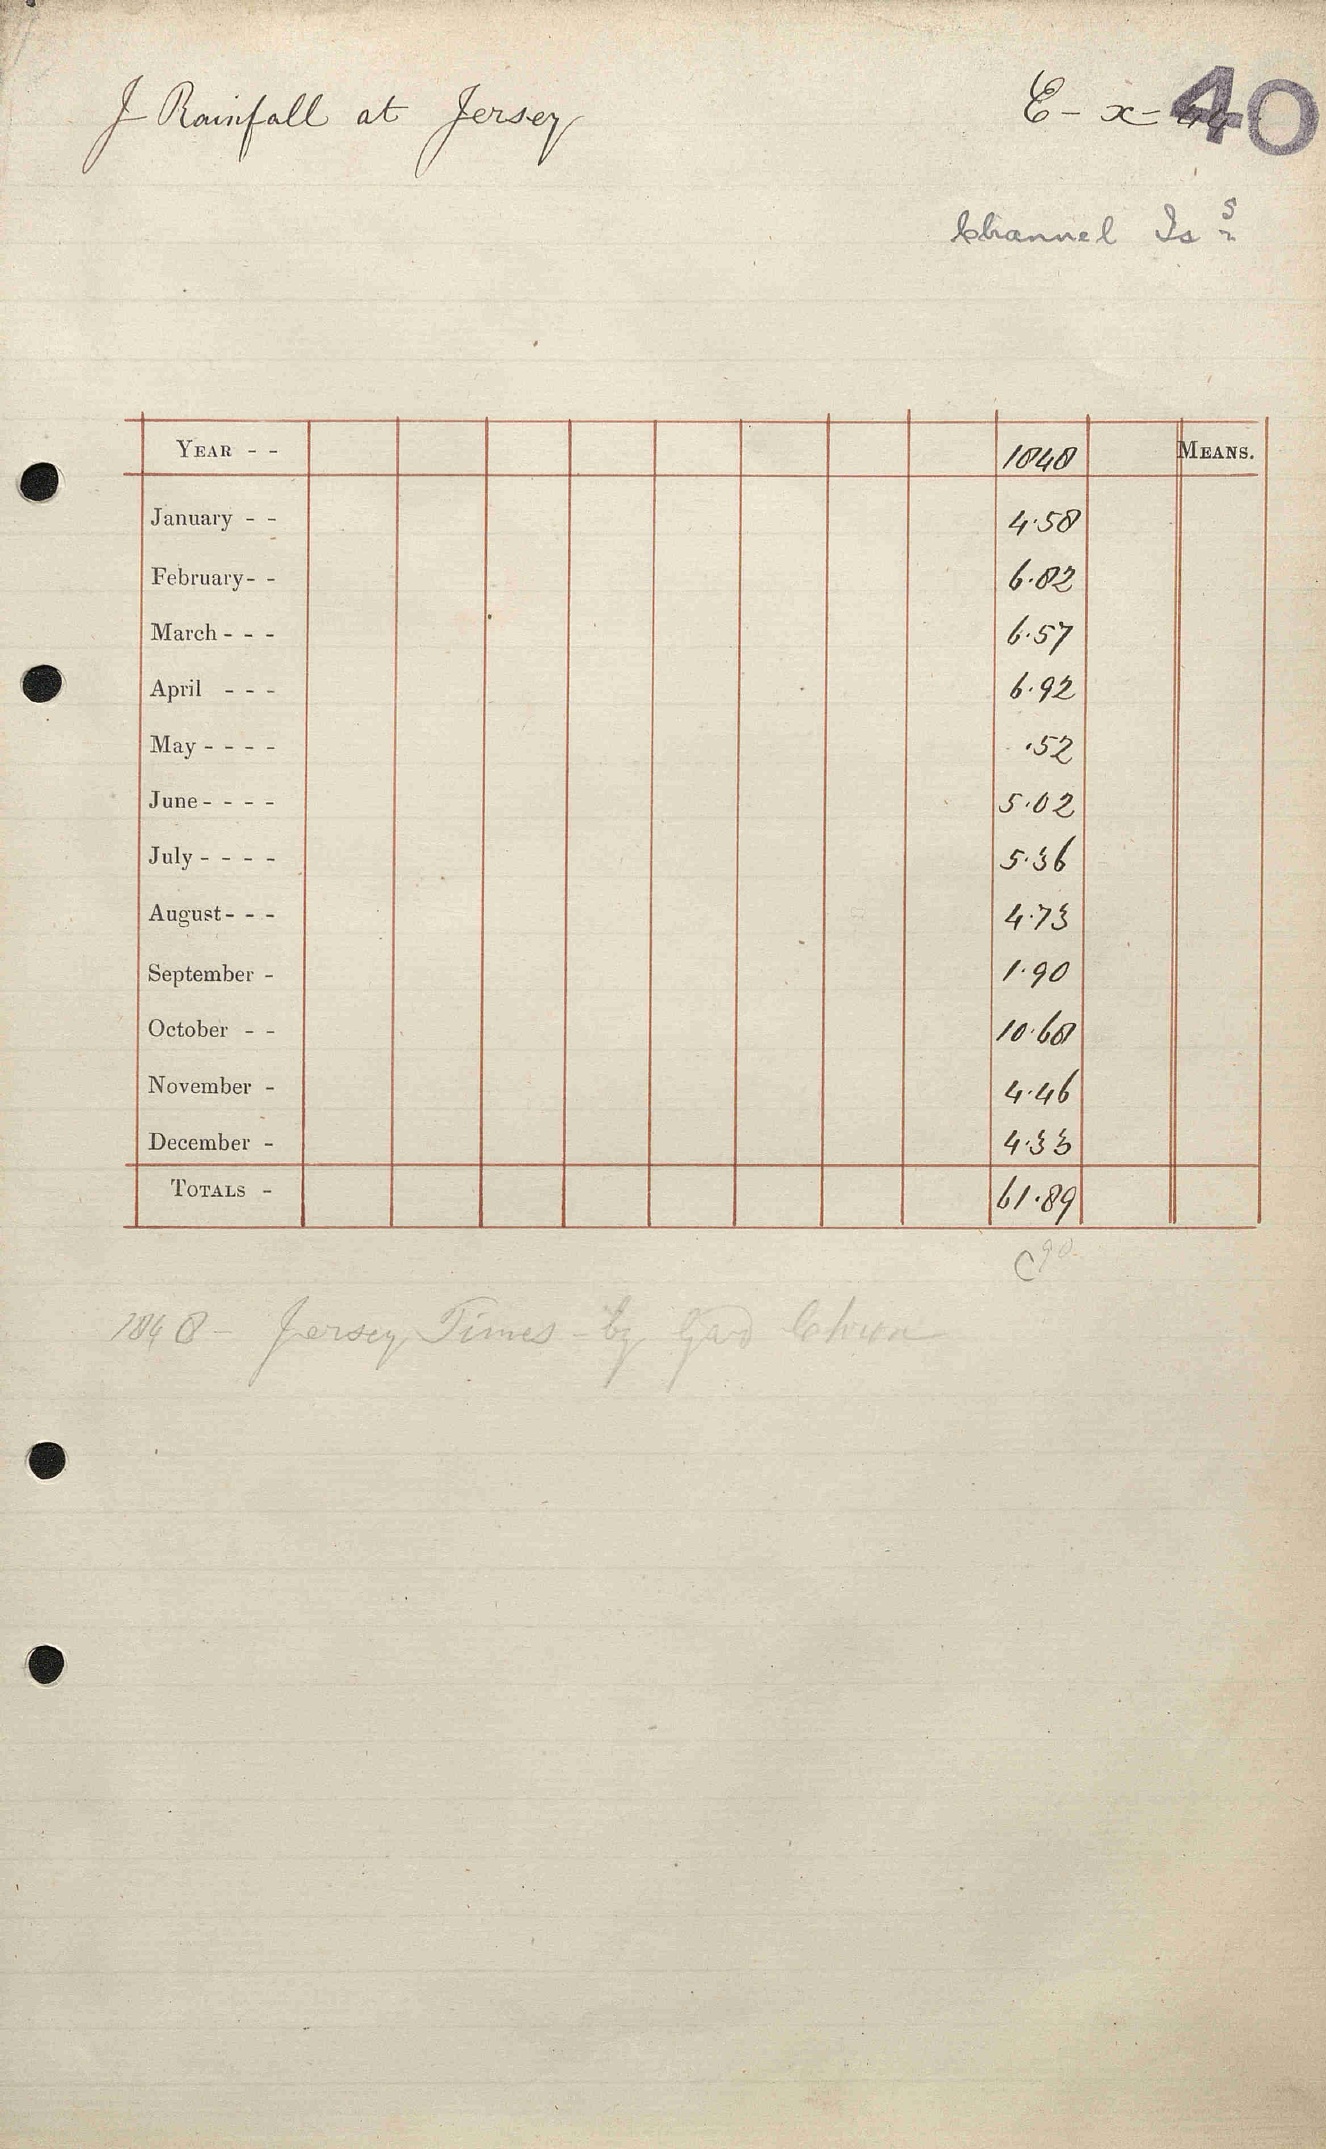 J Rainfall at Jersey E - x = 40
Channel Is s
YEAR - - 1848 MEANS.
January - - 4.58
February - - 6.82
March - - - 6.57
April - - - 6.92
May - - - - .52
June - - - - 5.02
July - - - - 5.36
August - - - 4.73
September - 1.90
October - - 10.68
November - 4.46
December - 4.33
TOTALS - 61.89
C 90
1848 - Jersey Times - by Gard Chron